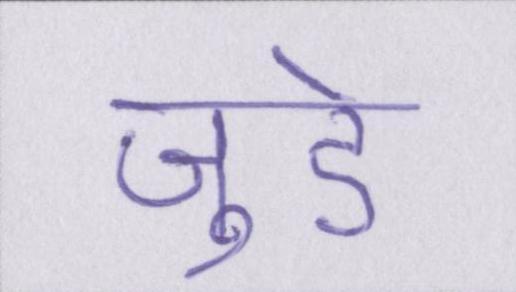 जुडे